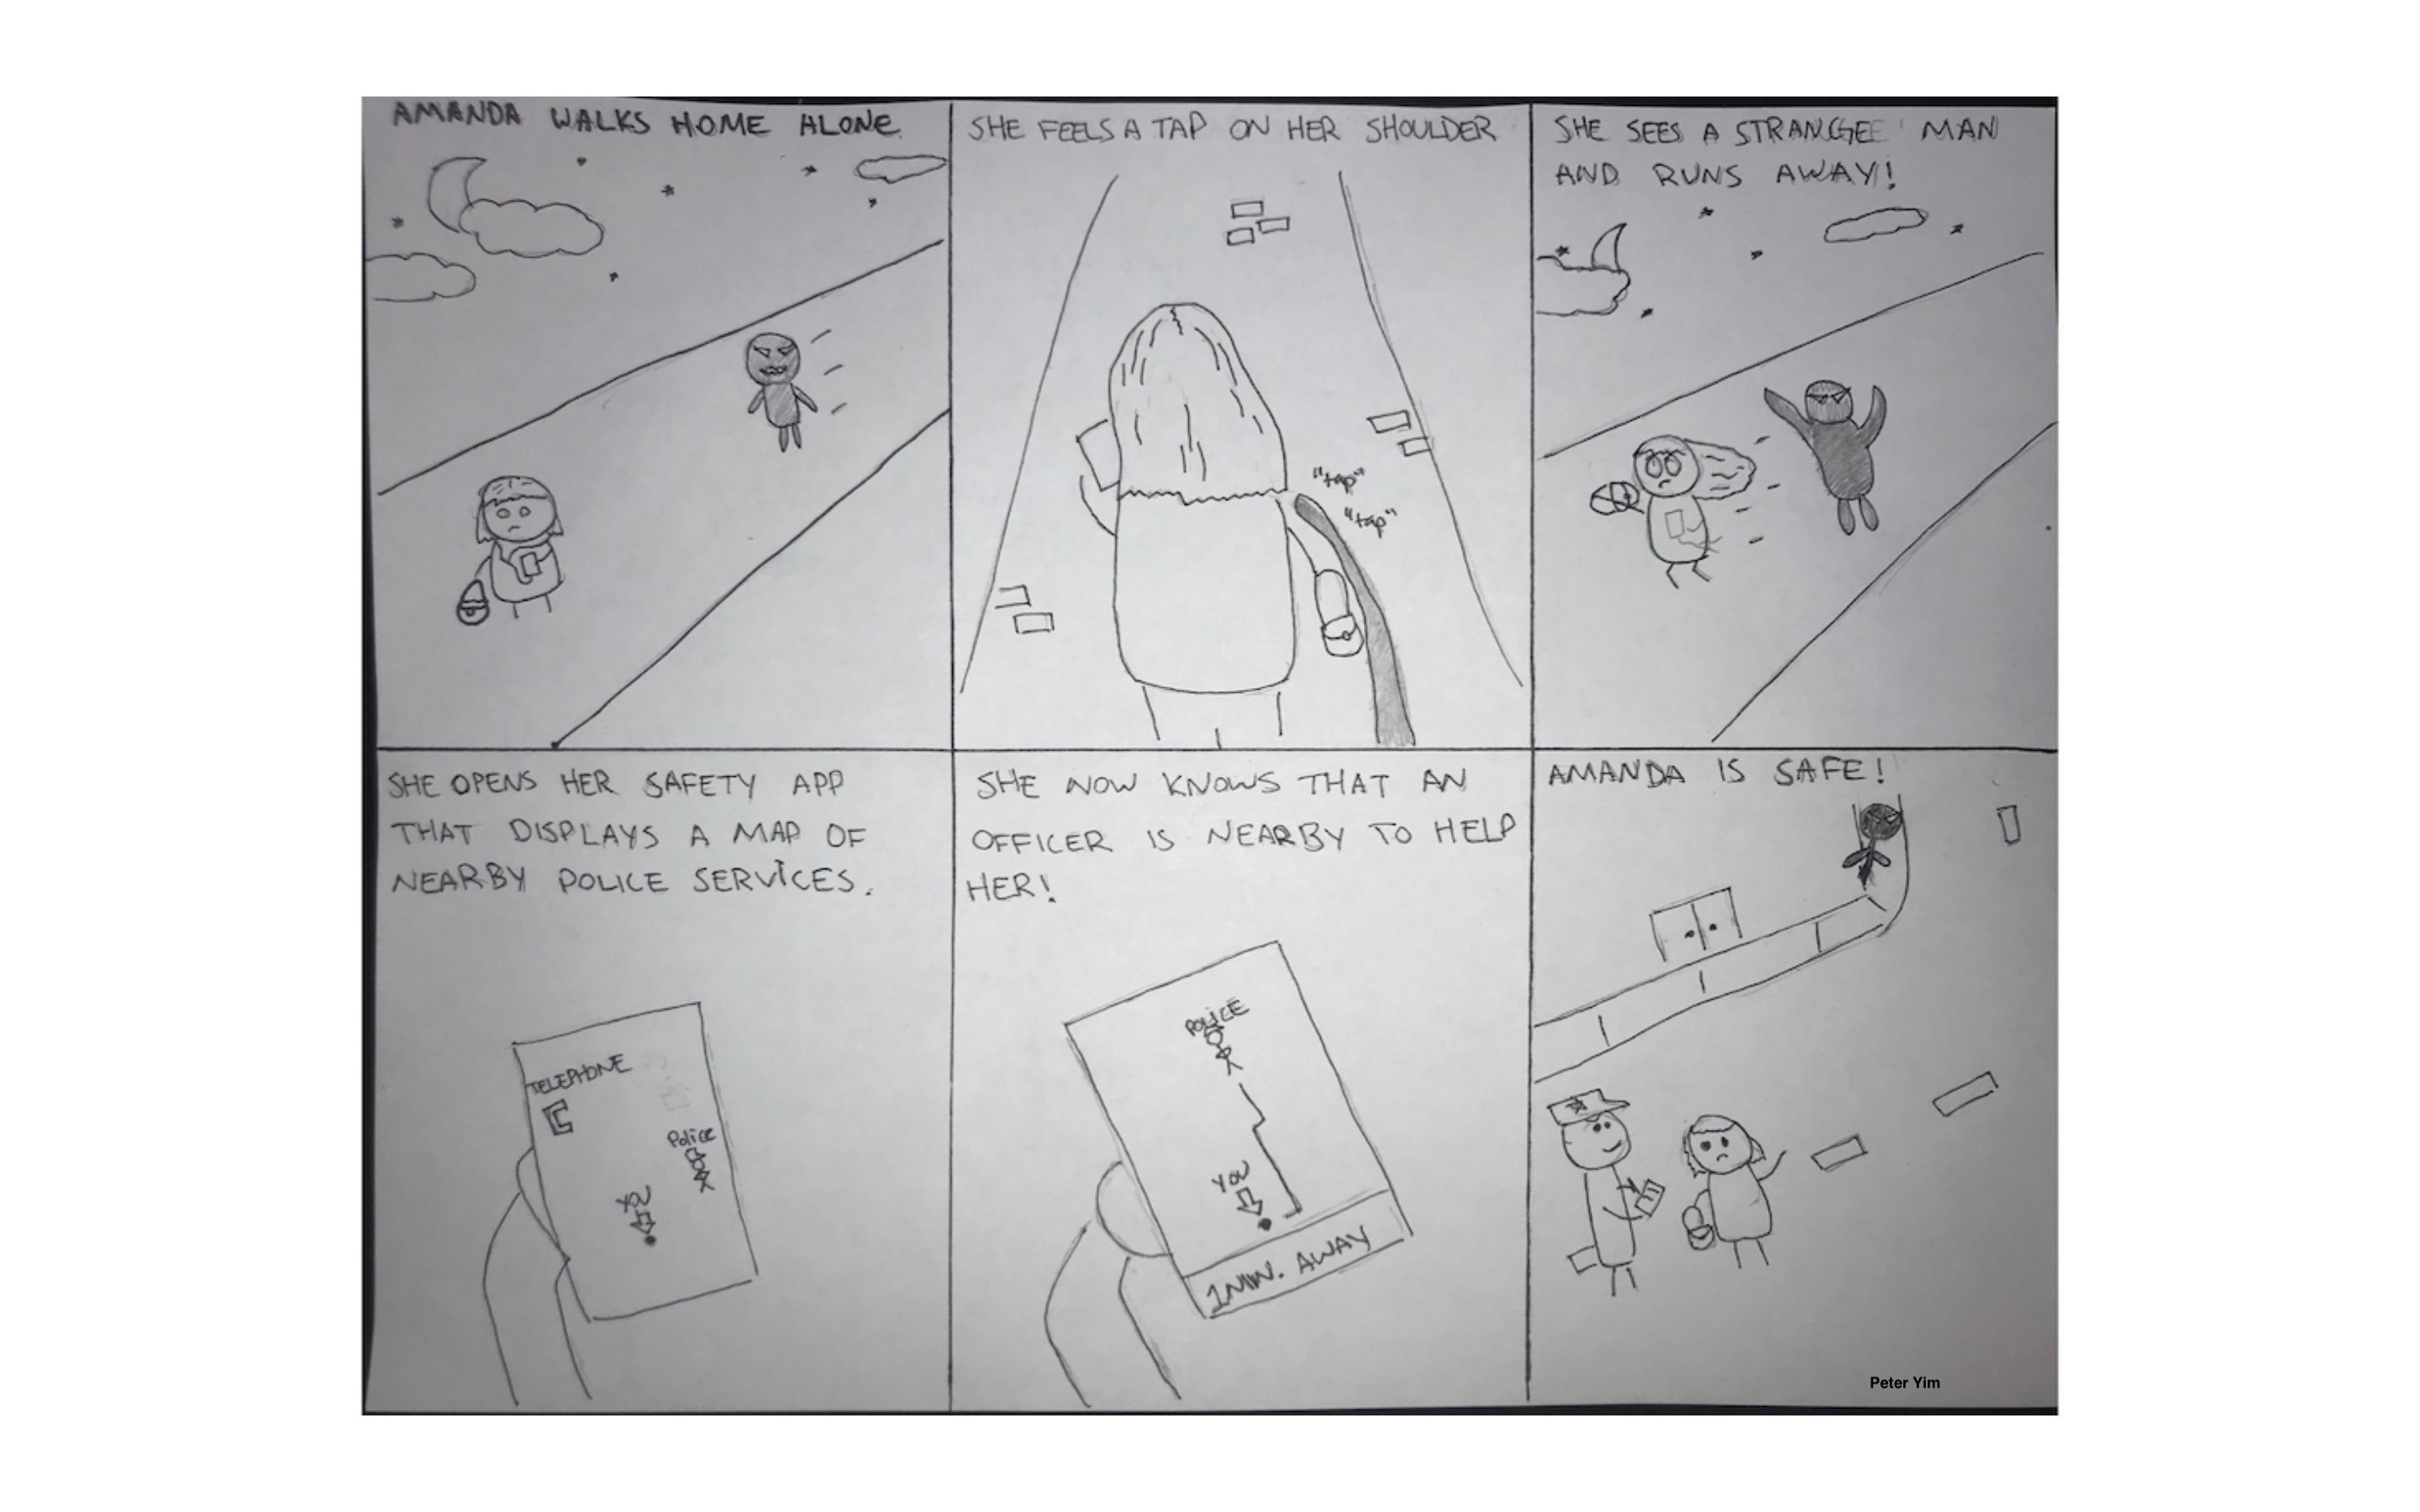 AMANDA WALKS HOME ALONE.
SHE FEELS A TAP ON HER SHOULDER
"tap"
"tap"
SHE SEES A STRANGEE MAN
AND RUNS AWAY!
SHE OPENS HER SAFETY APP
THAT DISPLAYS A MAP OF
NEARBY POLICE SERVICES.
TELEPHONE
Police
YOU
SHE NOW KNOWS THAT AN
OFFICER IS NEARBY TO HELP
HER!
POLICE
YOU
1 MIN. AWAY
AMANDA IS SAFE!
Peter Yim